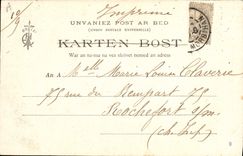 Imprimé
UNVANIEZ POST AR BED
(UNION POSTALE UNIVERSELLE)
KARTEN BOST
War an tu-man na vez skrivet nemed an adres
An A Melle Marie Louise Claverie
75 rue du Rempart 75
Rochefort s/m
(Ch. Inf.)